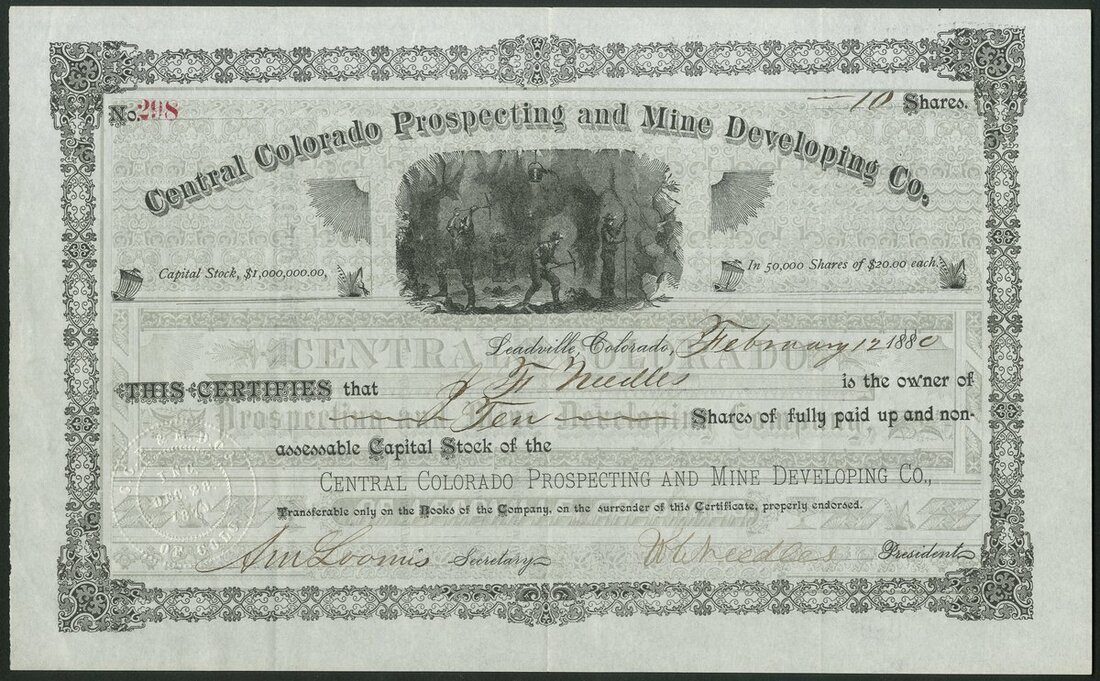 No. 298
10 Shares.
Central Colorado Prospecting and Mine Developing Co.
Capital Stock, $1,000,000.00,
In 50,000 Shares of $20.00 each.
Leadville, Colorado, February 12 1880
CENTRAL COLORADO
THIS CERTIFIES that J F Needles is the owner of
Prospecting and Mine Developing Company,
Ten Shares of fully paid up and non-
assessable Capital Stock of the
CENTRAL COLORADO PROSPECTING AND MINE DEVELOPING CO.,
Transferable only on the Books of the Company, on the surrender of this Certificate, properly endorsed.
Loomis Secretary
W C Needles President